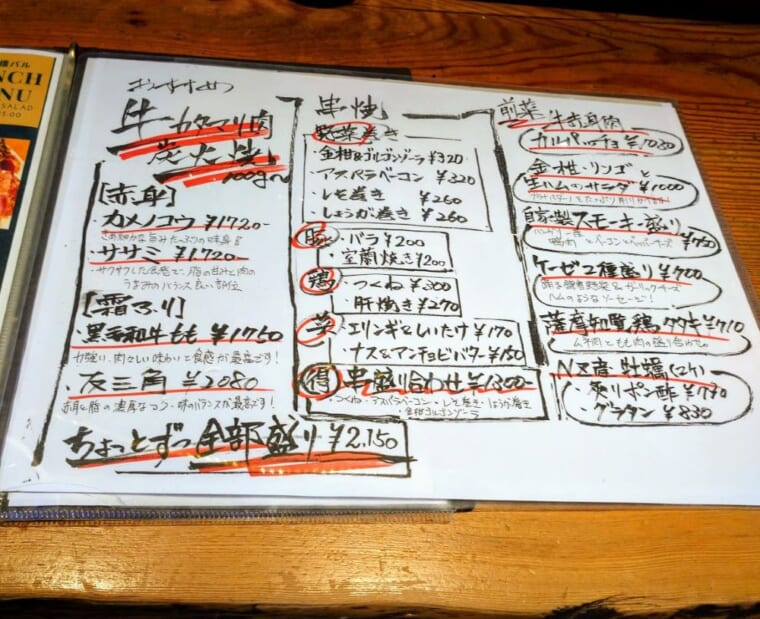 様バル
NCH
NU
SALAD
おすすめ
牛カタマリ肉
炭火焼
100g〜
[赤身]
・カメノコウ ¥1720-
・ササミ ¥1720-
・サクサクした食感で、脂の甘みと肉の
うまみのバランス良い部位
[霜ふり]
・黒毛和牛もも ¥1750
力強い肉々しい味わいと食感が最高です!
・友三角 ¥2080
赤身と脂の濃厚なコク・味のバランスが最高です!
ちょっとずつ全部盛り ¥2.150
串焼
野菜巻き
・金柑&ゴルゴンゾーラ ¥320
・アスパラベーコン ¥320
・レモ巻き ¥260
・しょうが巻き ¥260
豚
・バラ ¥200
・室蘭焼き ¥200
鶏
・つくね ¥300
・肝焼き ¥270
・エリンギ&しいたけ ¥170
・ナス&アンチョビバター ¥150
得 串盛り合わせ ¥1300-
・つくね・アスパラベーコン・レモ巻き・しょうが巻き
・金柑ゴルゴンゾーラ
前菜
牛赤身肉
カルパッチョ ¥1080
金柑・リンゴと
生ハムのサラダ ¥1000
自家製スモーキー盛り
¥750
ケーゼ2種盛り ¥700
ハムのようなソーセージ!
薩摩知覧鶏タタキ ¥710
ムネ肉ともも肉の盛り合わせ
NZ産 牡蠣(2ケ)
・炙りポン酢 ¥770
・グラタン ¥830